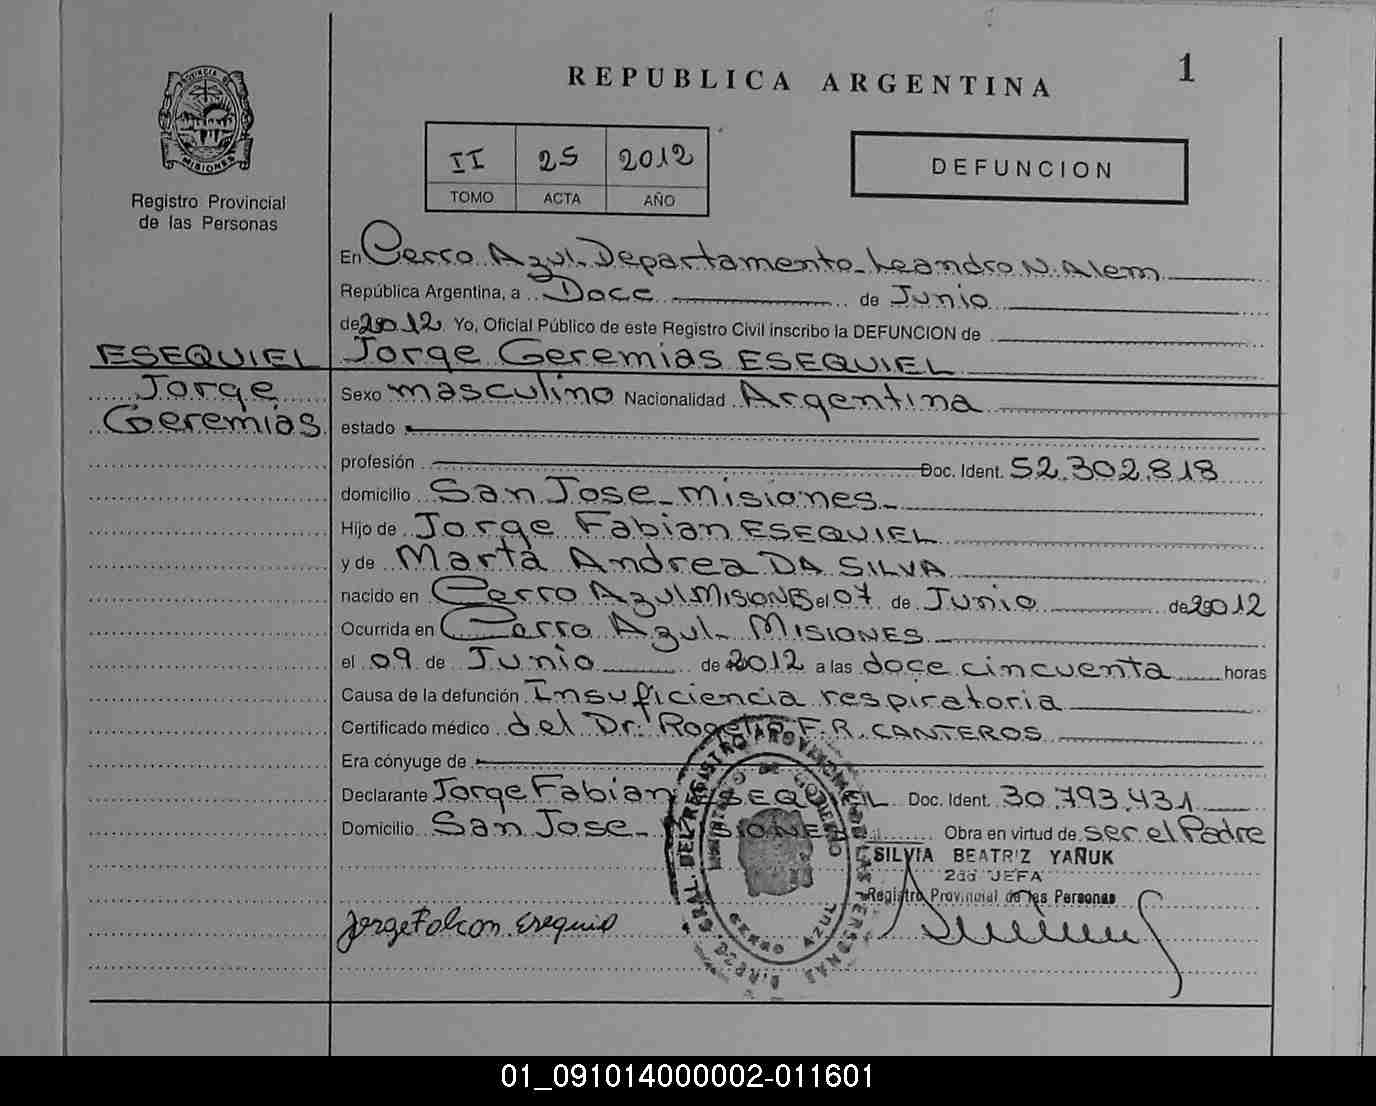 1
REPUBLICA ARGENTINA
PROVINCIA DE MISIONES
Registro Provincial
de las Personas
II 25 2012
TOMO ACTA AÑO
DEFUNCION
En Cerro Azul - Departamento - Leandro N. Alem
República Argentina, a Doce de Junio
de 2012 Yo, Oficial Público de este Registro Civil inscribo la DEFUNCION de
ESEQUIEL Jorge Geremias ESEQUIEL
Jorge
Geremias
Sexo masculino Nacionalidad Argentina
estado
profesión Doc. Ident. 52.302.818
domicilio San Jose - misiones -
Hijo de Jorge Fabian ESEQUIEL
y de Marta Andrea DA SILVA
nacido en Cerro Azul MISIONES el 07 de Junio de 2012
Ocurrida en Cerro Azul - MISIONES
el 09 de Junio de 2012 a las doce cincuenta horas
Causa de la defunción Insuficiencia respiratoria
Certificado médico del Dr. Rogelio F. R. CANTEROS
Era cónyuge de
Declarante Jorge Fabian ESEQUIEL Doc. Ident. 30.793.431
Domicilio San Jose - MISIONES Obra en virtud de ser el Padre
SILVIA BEATRIZ YAÑUK
2da JEFA
Registro Provincial de las Personas
DIREC. GRAL. DEL REGISTRO PROVINCIAL DE LAS PERSONAS
MINISTERIO DE GOBIERNO
CERRO AZUL
01_091014000002-011601